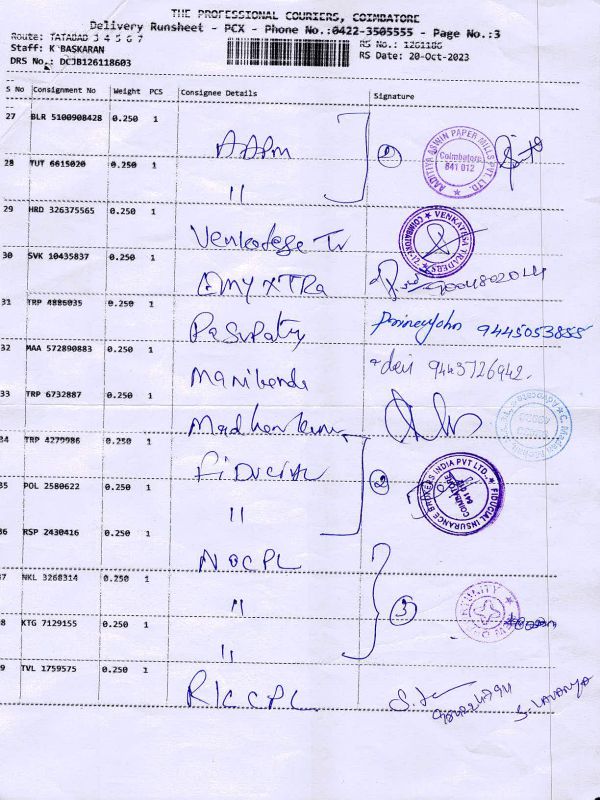 THE PROFESSIONAL COURIERS, COIMBATORE
Delivery Runsheet - PCX - Phone No.:0422-3505555 - Page No.:3
Route: TATABAD 3 4 5 6 7
Staff: K BASKARAN
RS No.: 1261186
DRS No.: DCJB126118603
RS Date: 20-Oct-2023
S No Consignment No Weight PCS Consignee Details Signature
27 BLR 5100908428 0.250 1
AAPM
1
AADITIYA ASWIN PAPER MILLS PVT. LTD.
Coimbatore
641 012
28 TUT 6615020 0.250 1
"
29 HRD 326375565 0.250 1
Venkatesa Tr
VENKATESA TRADERS
COIMBATORE-12
30 SVK 10435837 0.250 1
OMY XTRA
31 TRP 4886035 0.250 1
Pasupaty
9445053855
32 MAA 572890883 0.250 1
9443726942
33 TRP 6732887 0.250 1
34 TRP 4279986 0.250 1
Fiducial
2
FIDUCIAL INSURANCE BROKERS INDIA PVT LTD.,
COIMBATORE
641 012
35 POL 2580622 0.250 1
"
36 RSP 2430416 0.250 1
NOCPL
3
7 NKL 3268314 0.250 1
"
8 KTG 7129155 0.250 1
"
9 TVL 1759575 0.250 1
RICCPL
S. LAVANYA